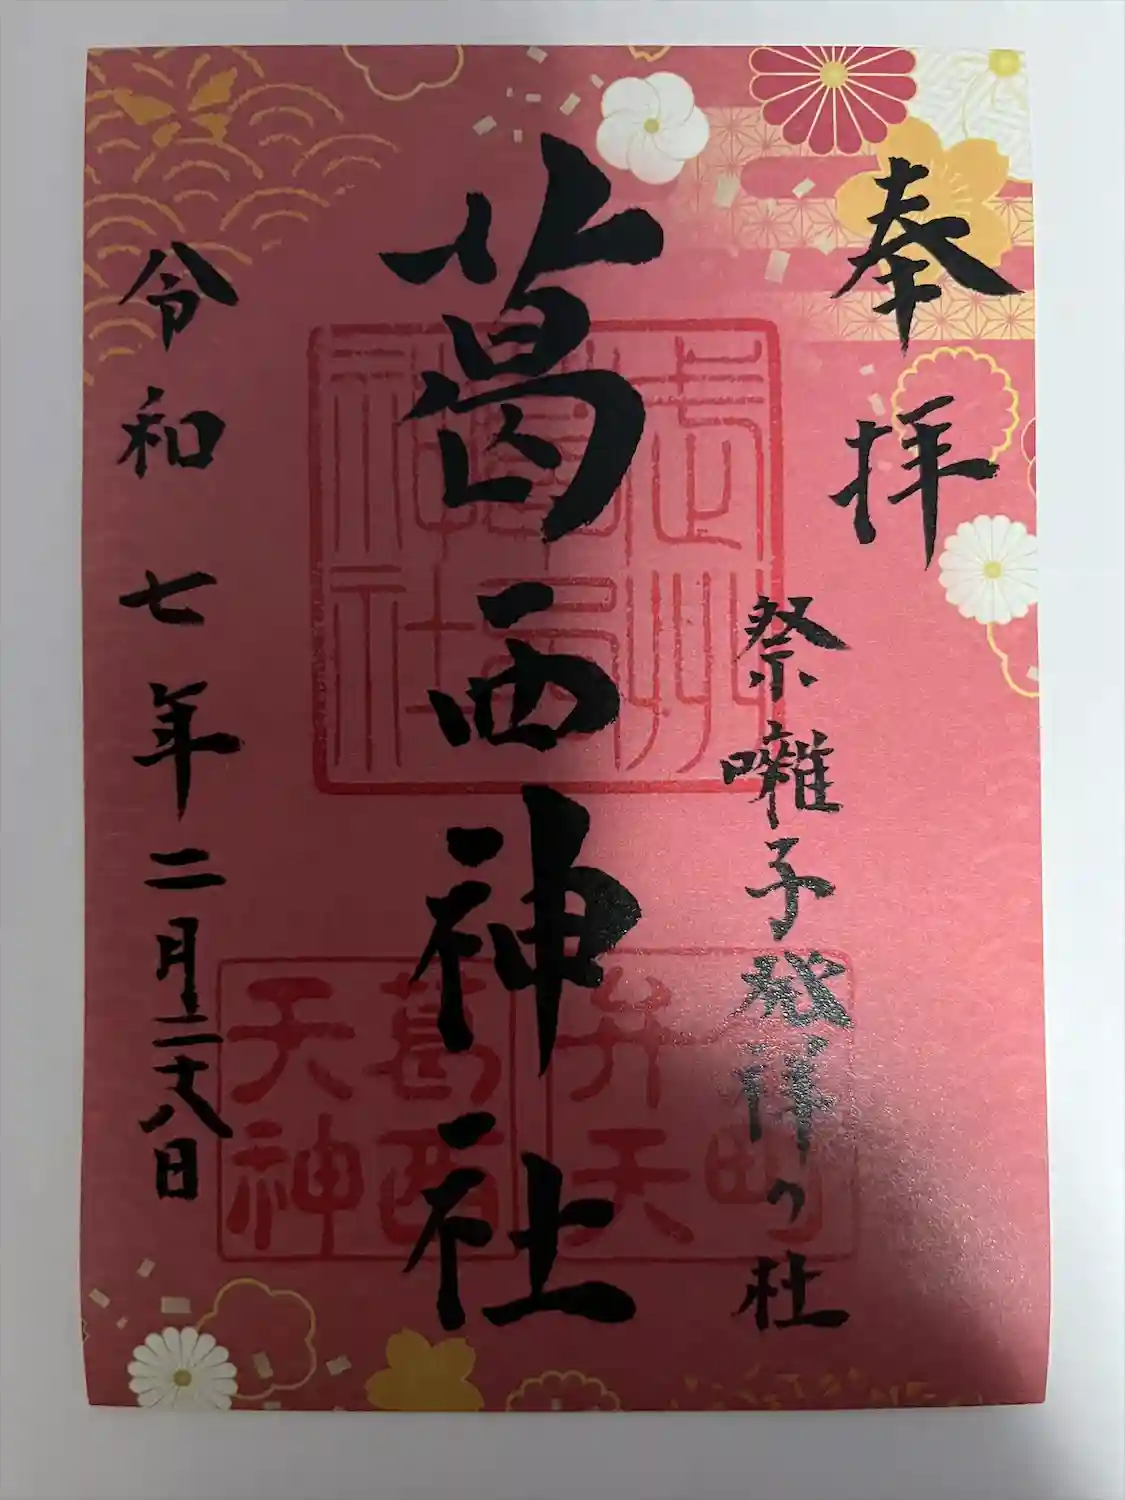 奉拝
祭囃子発祥ノ社
葛西神社
令和七年二月二十八日
武州
葛西
神社
弁天
葛西
天神